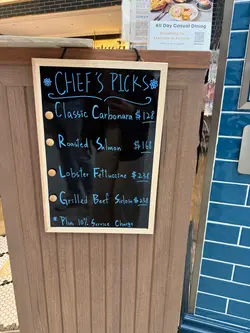 All Day Casual Dining
CHEF'S PICKS
Classic Carbonara $128
Roasted Salmon $168
Lobster Fettuccine $238
Grilled Beef Sirloin $238
* Plus 10% Service Charge